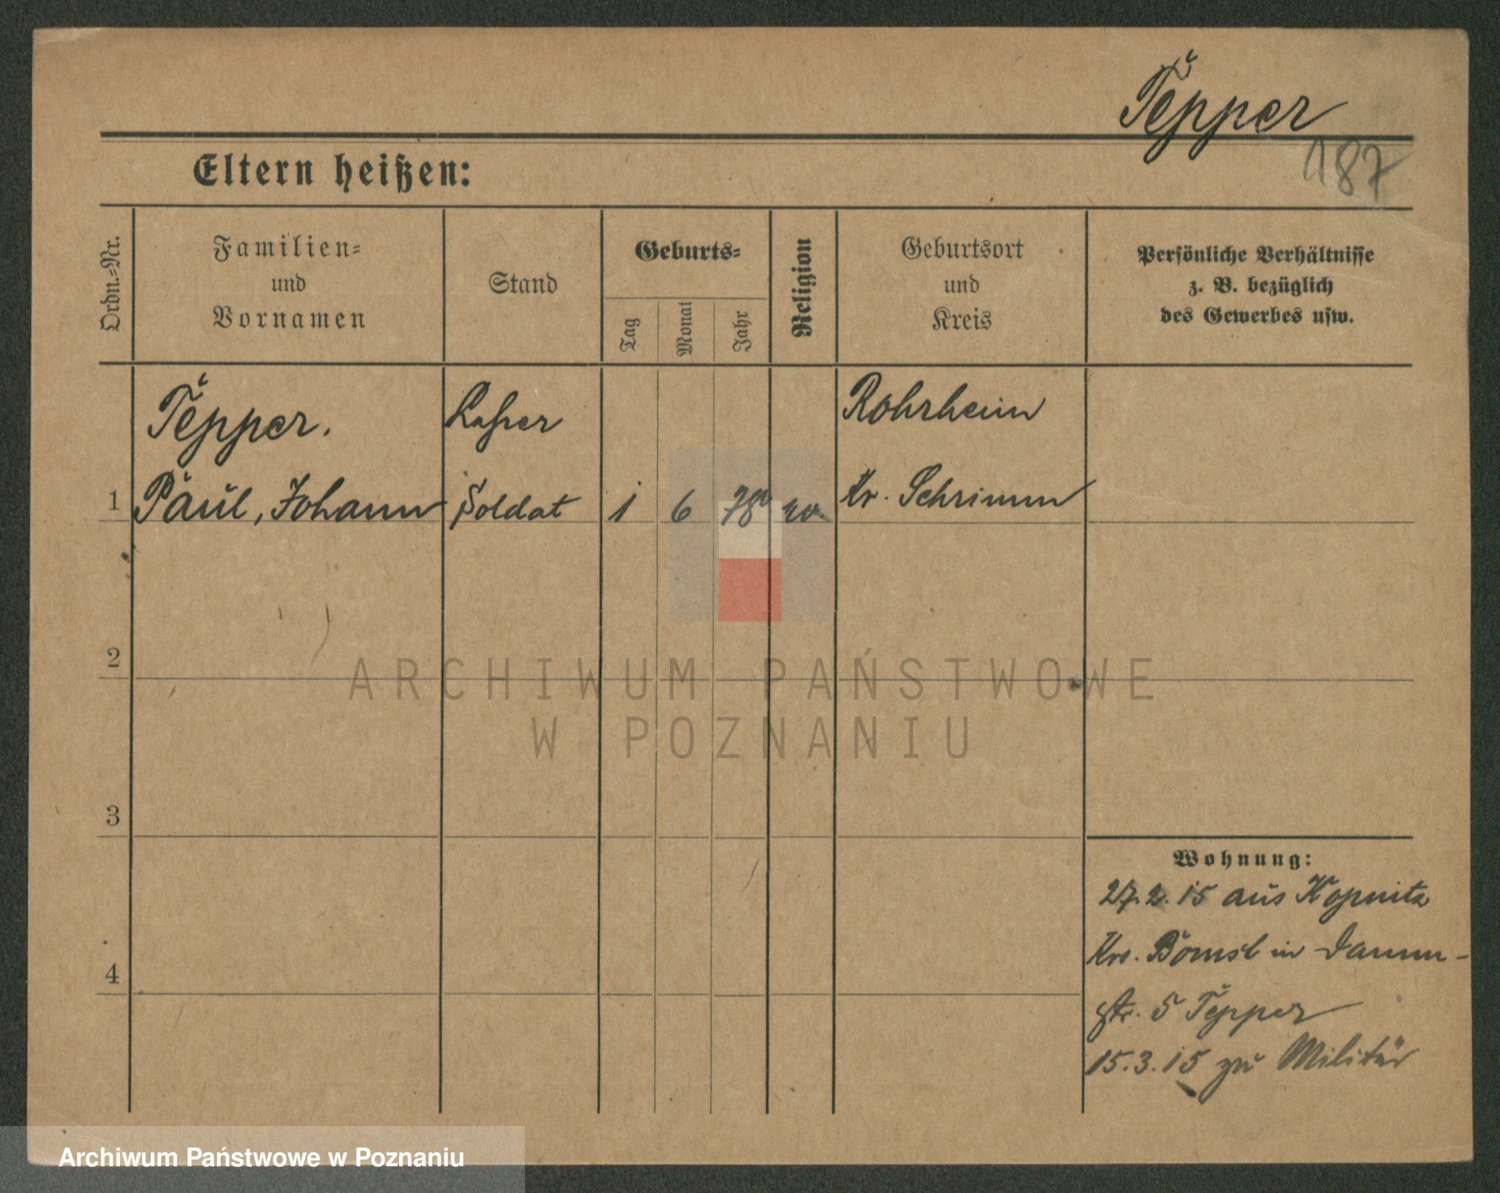 Tepper
187
Eltern heißen:
Ordn.=Nr.
Familien=
und
Vornamen
Stand
Geburts=
Tag
Monat
Jahr
Religion
Geburtsort
und
Kreis
Persönliche Verhältnisse
z. B. bezüglich
des Gewerbes usw.
Tepper.
Rohrheim
1 Paul, Johann Soldat 1 6 78 Kr. Schrimm
2
3
4
Wohnung:
27.2.15 aus Kopnitz
Krs. Bomst in Damm-
str. 5 Tepper
15.3.15 zu Militär
ARCHIWUM PAŃSTWOWE
W POZNANIU
Archiwum Państwowe w Poznaniu